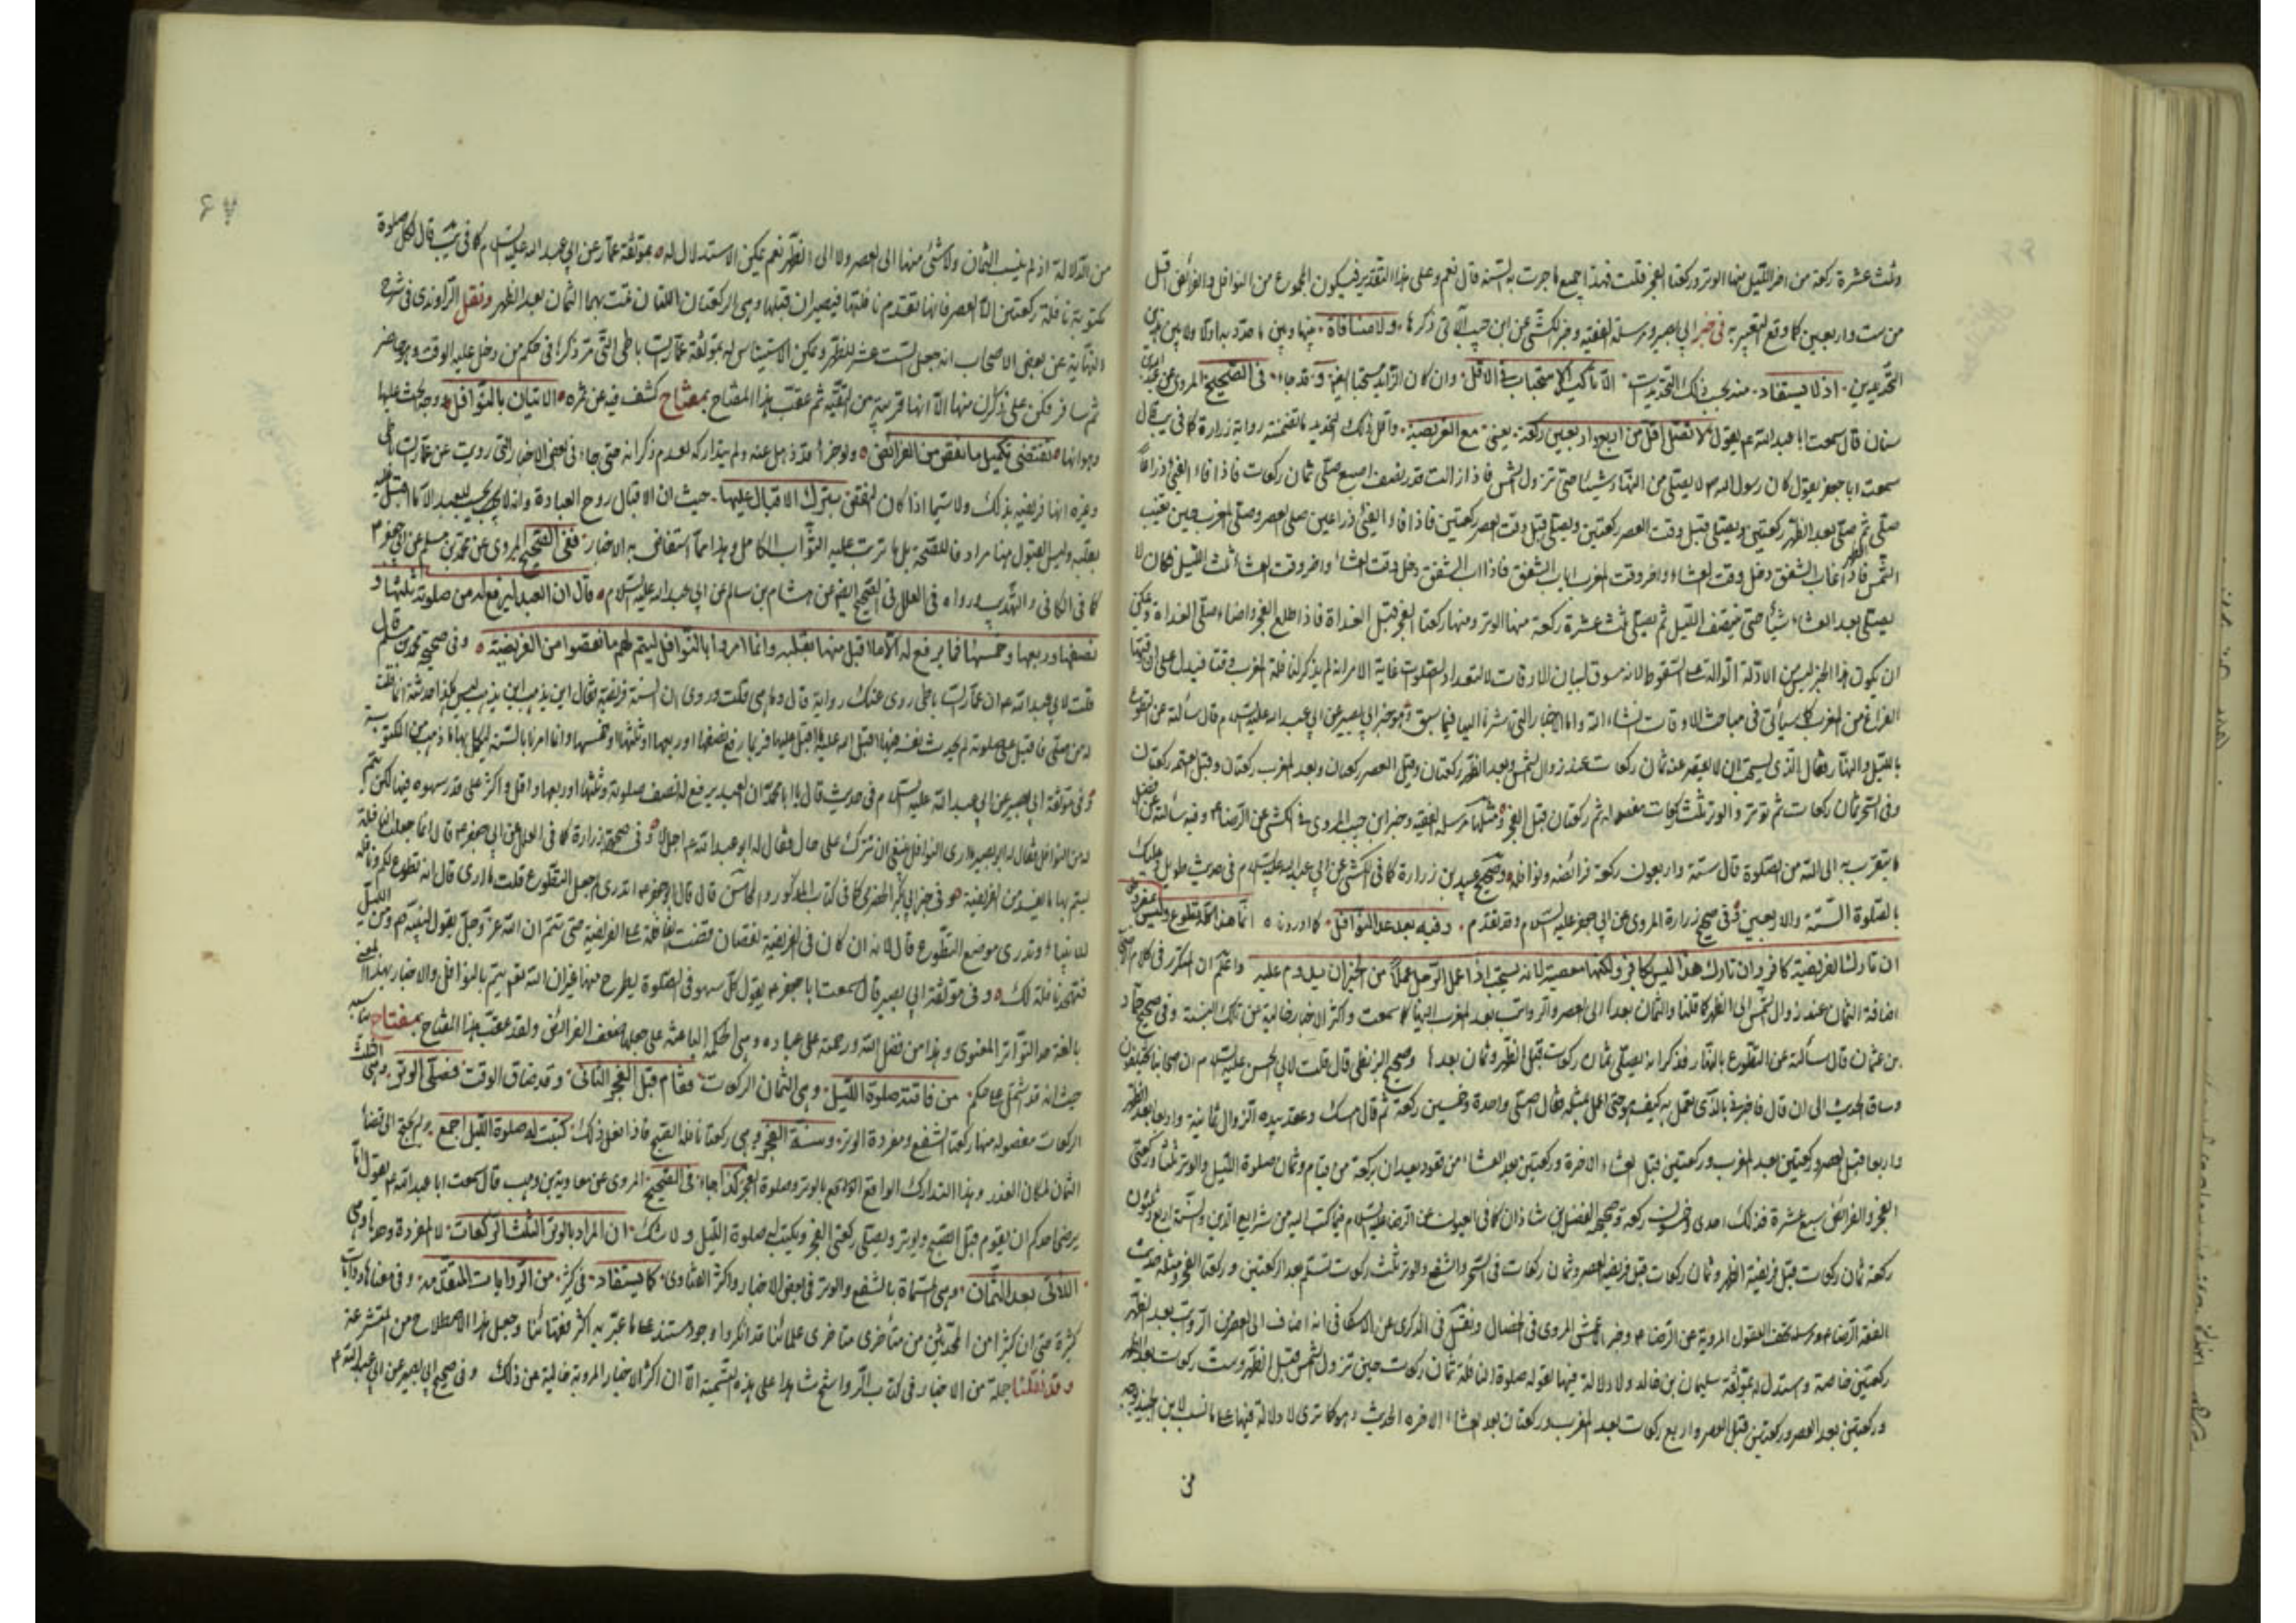 وثلث عشرة ركعة من اخر الليل منها الوتر وركعتا الفجر قلت فهذا جميع ما جرت به السنة قال نعم وعلى هذا التقدير فيكون المجموع من النوافل والفرائض اقل
من ست واربعين كما وقع التعبير به في خبر ابي بصير ومرسلة الفقيه وخبر الكشي عن ابن حبيب الآتي ذكرها ولا منافاة بينها وبين ما
التحديدين اذ لا يستفاد من ذلك التحديد الا تأكيد الاستحباب في الاقل وان كان الزايد مستحبا ايضا وقد جاء في الصحيح المروي عن
سنان قال سمعت ابا عبد الله ع يقول لا تصل اقل من اربع واربعين ركعة يعني مع الفريضة واقل ذلك التحديد ما تضمنته رواية زرارة كما في يب قال
سمعت ابا جعفر يقول كان رسول الله ص لا يصلي من النهار شيئا حتى تزول الشمس فاذا زالت قدر نصف اصبع صلى ثمان ركعات فاذا فاء الفئ ذراعا
صلى الظهر ثم صلى بعد الظهر ركعتين ويصلي قبل وقت العصر ركعتين فاذا فاء الفئ ذراعين صلى العصر وصلى المغرب حين تغيب
الشمس فاذا غاب الشفق دخل وقت العشاء واخر وقت المغرب اياب الشفق فاذا اب الشفق دخل وقت العشاء واخر وقت العشاء ثلث الليل فكان لا
يصلي بعد العشاء شيئا حتى ينتصف الليل ثم يصلي ثلث عشرة ركعة منها الوتر ومنها ركعتا الفجر قبل الغداة فاذا طلع الفجر واضاء صلى الغداة ويمكن
ان يكون هذا الخبر ليس من الادلة الدالة على السقوط لانه مسوق لبيان الاوقات لا لتعداد الصلوات غاية الامر انه لم يذكر لنافلة المغرب وقتا فيدل على ان وقتها
الفراغ من المغرب كما سيأتي في مباحث الاوقات انشاء الله واما الاخبار التي اشرنا اليها فيما سبق فهو خبر ابي بصير عن ابي عبد الله عليه السلام قال سألته عن التطوع
بالليل والنهار فقال الذي يستحب ان لا يقصر عنه ثمان ركعات عند زوال الشمس وبعد الظهر ركعتان وقبل العصر ركعتان وبعد المغرب ركعتان وقبل العتمة ركعتان
وفي السحر ثمان ركعات ثم توتر والوتر ثلث ركعات مفصولة ثم ركعتان قبل الفجر ومثلها مرسلة الفقيه وخبر ابن حبيب المروي في الكشي عن الرضا ع وفيه سألته عن افضل
ما يتقرب به الى الله من الصلوة قال ستة واربعون ركعة فرائضه ونوافله وصحيح عبيد بن زرارة كما في الكشي عن ابي عبد الله عليه السلام في حديث طويل عليك
بالصلوة الستة والاربعين وفي صحيح زرارة المروي عن ابي جعفر عليه السلام وقد تقدم وفيه بعد عد النوافل كما اوردناه انما هذا كله تطوع وليس بمفروض
ان تارك الفريضة كافر وان تارك هذا ليس بكافر ولكنها معصية لانه يستحب اذا عمل الرجل عملا من الخير ان يدوم عليه واعلم ان المكرر في كلام
اضافة الثمان عند زوال الشمس الى الظهر كما قلنا والثمان بعدها الى العصر والرواتب بعد المغرب اليها كما سمعت واكثر الاخبار خالية من تلك النسبة وفي صحيح حماد
بن عثمان قال سألته عن التطوع بالنهار فذكر انه يصلي ثمان ركعات قبل الظهر وثمان بعدها وصحيح البزنطي قال قلت لابي الحسن عليه السلام ان اصحابنا يختلفون
وساق الحديث الى ان قال فاخبرني بالذي تعمل به كيف هو حتى اعمل بمثله فقال اصلي واحدة وخمسين ركعة ثم قال امسك وعقد بيده الزوال ثمانية واربعا بعد الظهر
واربعا قبل العصر وركعتين بعد المغرب وركعتين قبل العشاء الاخرة وركعتين بعد العشاء من قعود يعدان بركعة من قيام وثمان صلوة الليل والوتر ثلثا وركعتي
الفجر والفرائض سبع عشرة فذلك احدى وخمسون ركعة وصحيح الفضل بن شاذان كما في العيون عن الرضا عليه السلام فيما كتب اليه من شرايع الدين والسنة اربع وثلثون
ركعة ثمان ركعات قبل فريضة الظهر وثمان ركعات قبل فريضة العصر وثمان ركعات في السحر والشفع والوتر ثلث ركعات تسلم بعد الركعتين وركعتا الفجر ومثله حديث
الفقه الرضا ع ومرسلة تحف العقول المروية عن الرضا ع وخبر الاعمش المروي في الخصال ونقل في الذكرى عن الاسكافي انه اضاف الى العصر من الرواتب بعد الظهر
ركعتين خاصة واستدل له بموثقة سليمان بن خالد ولا دلالة فيها لقوله صلوة النافلة ثمان ركعات حين تزول الشمس قبل الظهر وست ركعات بعد الظهر
وركعتين بعد العصر وركعتين قبل العصر واربع ركعات بعد المغرب وركعتان بعد العشاء الاخرة الحديث وهو كما ترى لا دلالة فيها على ما نسب لابن الجنيد
من
من الدلالة اذ لم ينسب الثمان ولا شئ منها الى العصر ولا الى الظهر نعم يمكن الاستدلال له بموثقة عمار عن ابي عبد الله عليه السلام كما في يب قال لكل صلوة
مكتوبة نافلة ركعتين الا العصر فانها تقدم نافلتها فيصيران قبلها وهي الركعتان اللتان تمت بهما الثمان بعد الظهر ونقل الراوندي في شرح
النهاية عن بعض الاصحاب انه جعل الست عشر للظهر ويمكن الاستيناس له بموثقة عمار الساباطي التي مر ذكرها في حكم من دخل عليه الوقت وهو حاضر
ثم سافر فكن على ذكر منها الا انها قريبة من التقية ثم عقب هذا المفتاح بمفتاح كشف فيه عن ثمرة الاتيان بالنوافل ووجه الحث عليها
وهو انها تقتضي تكميل ما نقص من الفرائض
وغيره انها فريضة بذلك ولا سيما اذا كان النقص بترك الاقبال عليها حيث ان الاقبال روح العبادة وانه لا يحسب للعبد الا ما اقبل عليه
بقلبه وليس القبول هنا مرادفا للصحة بل ما ترتب عليه الثواب الكامل وهذا مما استفاض به الاخبار ففي الصحيح المروي عن محمد بن مسلم عن ابي جعفر ع
كما في الكافي والتهذيب ورواه في العلل في الصحيح ايضا عن هشام بن سالم عن ابي عبد الله عليه السلام قال ان العبد ليرفع له من صلوته ثلثها و
نصفها وربعها وخمسها فما يرفع له الا ما اقبل منها بقلبه وانما امروا بالنوافل ليتم لهم ما نقصوا من الفريضة وفي صحيح محمد بن مسلم قال
قلت لابي عبد الله ع ان عمار الساباطي روى عنك رواية قال وما هي قلت روى ان السنة فريضة فقال اين يذهب اين يذهب ليس هكذا حدثته انما قلت
له من صلى فاقبل على صلوته لم يحدث نفسه فيها اقبل الله عليه ما اقبل عليها فربما رفع نصفها او ربعها او ثلثها او خمسها وانما امرنا بالسنة ليكمل بها ما ذهب من المكتوبة
وفي موثقة ابي بصير عن ابي عبد الله عليه السلام في حديث قال يا ابا محمد ان العبد يرفع له نصف صلوته وثلثها او ربعها واقل واكثر على قدر سهوه فيها لكن يتم
له من النوافل فقال له ابو بصير ما ارى النوافل ينبغي ان تترك على حال فقال له ابو عبد الله ع اجل لا وفي صحيحة زرارة كما في العلل عن ابي جعفر ع قال انما جعلت النافلة
ليتم بها ما يفسد من الفريضة وفي خبر ابي بكر الحضرمي كما في كتاب المذكور والمحاسن قال قال ابو جعفر ع اتدري لم جعل التطوع قلت ما ادري قال انه تطوع لكم ونافلة
للانبياء وتدري موضع التطوع قال لانه ان كان في الفريضة نقصان قضيت النافلة على الفريضة حتى تتم ان الله عز وجل يقول لنبيه ص ومن الليل
فتهجد به نافلة لك وفي موثقة ابي بصير قال سمعت ابا جعفر ع يقول كل سهو في الصلوة يطرح منها غير ان الله تع يتم بالنوافل والاخبار بهذا المعنى
بالغة حد التواتر المعنوي وهذا من فضل الله ورحمته على عباده وهي الحكمة الباعثة على جعلها ضعف الفرائض ولقد عقب هذا المفتاح بمفتاح
حيث انه قد اشتمل على حكم من فاتته صلوة الليل وهي الثمان الركعات فقام قبل الفجر الثاني وقد ضاق الوقت فصلى الوتر وهي الثلث
الركعات مفصولة منها ركعتا الشفع ومفردة الوتر وسنة الفجر وهي ركعتا نافلة الصبح فاذا فعل ذلك كتبت له صلوة الليل اجمع ولم يحتج الى قضاء
الثمان لمكان العذر وهذا التدارك الواقع بالوتر وصلوة الفجر كذا جاء في الصحيح المروي عن معاوية بن وهب قال سمعت ابا عبد الله ع يقول اما
يرضى احدكم ان يقوم قبل الصبح ويوتر ويصلي ركعتي الفجر ويكتب له صلوة الليل ولا شك ان المراد بالوتر الثلث الركعات لا المفردة وحدها وهي
اللاتي بعد الثمان وهي المسماة بالشفع والوتر في بعض الاخبار واكثر الفتاوى كما يستفاد في كثير من الروايات المتقدمة وفي معناها روايات
كثيرة حتى ان كثيرا من المحدثين من متأخري متأخري علمائنا قد انكروا وجود مستند على ما عبر به اكثر فقهائنا وجعل هذا الاصطلاح من المتشرعة
وقد نقلنا جملة من الاخبار في كتاب الرواشح شاهدا على هذه التسمية الا ان اكثر الاخبار المروية خالية عن ذلك وفي صحيح ابي بصير عن ابي عبد الله ع